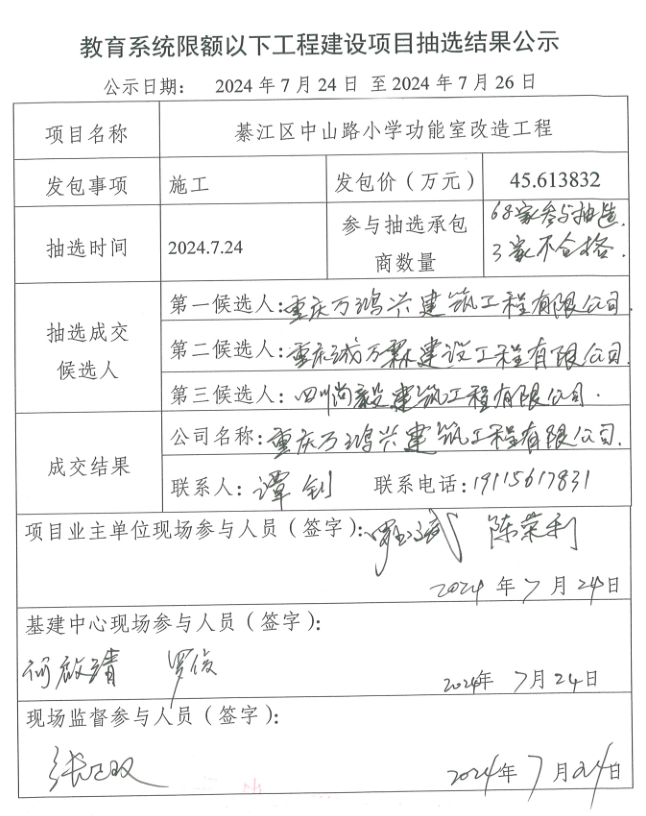 教育系统限额以下工程建设项目抽选结果公示
公示日期： 2024 年 7 月 24 日 至 2024 年 7 月 26 日
项目名称 綦江区中山路小学功能室改造工程
发包事项 施工 发包价（万元） 45.613832
抽选时间 2024.7.24 参与抽选承包商数量 68家参与抽选.
3家不合格.
抽选成交候选人
第一候选人:重庆万鸿兴建筑工程有限公司.
第二候选人:重庆诚万霖建设工程有限公司.
第三候选人:四川尚毅建筑工程有限公司.
成交结果
公司名称:重庆万鸿兴建筑工程有限公司.
联系人:谭钊 联系电话:19115617831
项目业主单位现场参与人员（签字）: 陈荣利
2024 年 7 月 24日
基建中心现场参与人员（签字）:
何启靖 罗俊
2024年 7月24日
现场监督参与人员（签字）:
2024年 7 月 24日